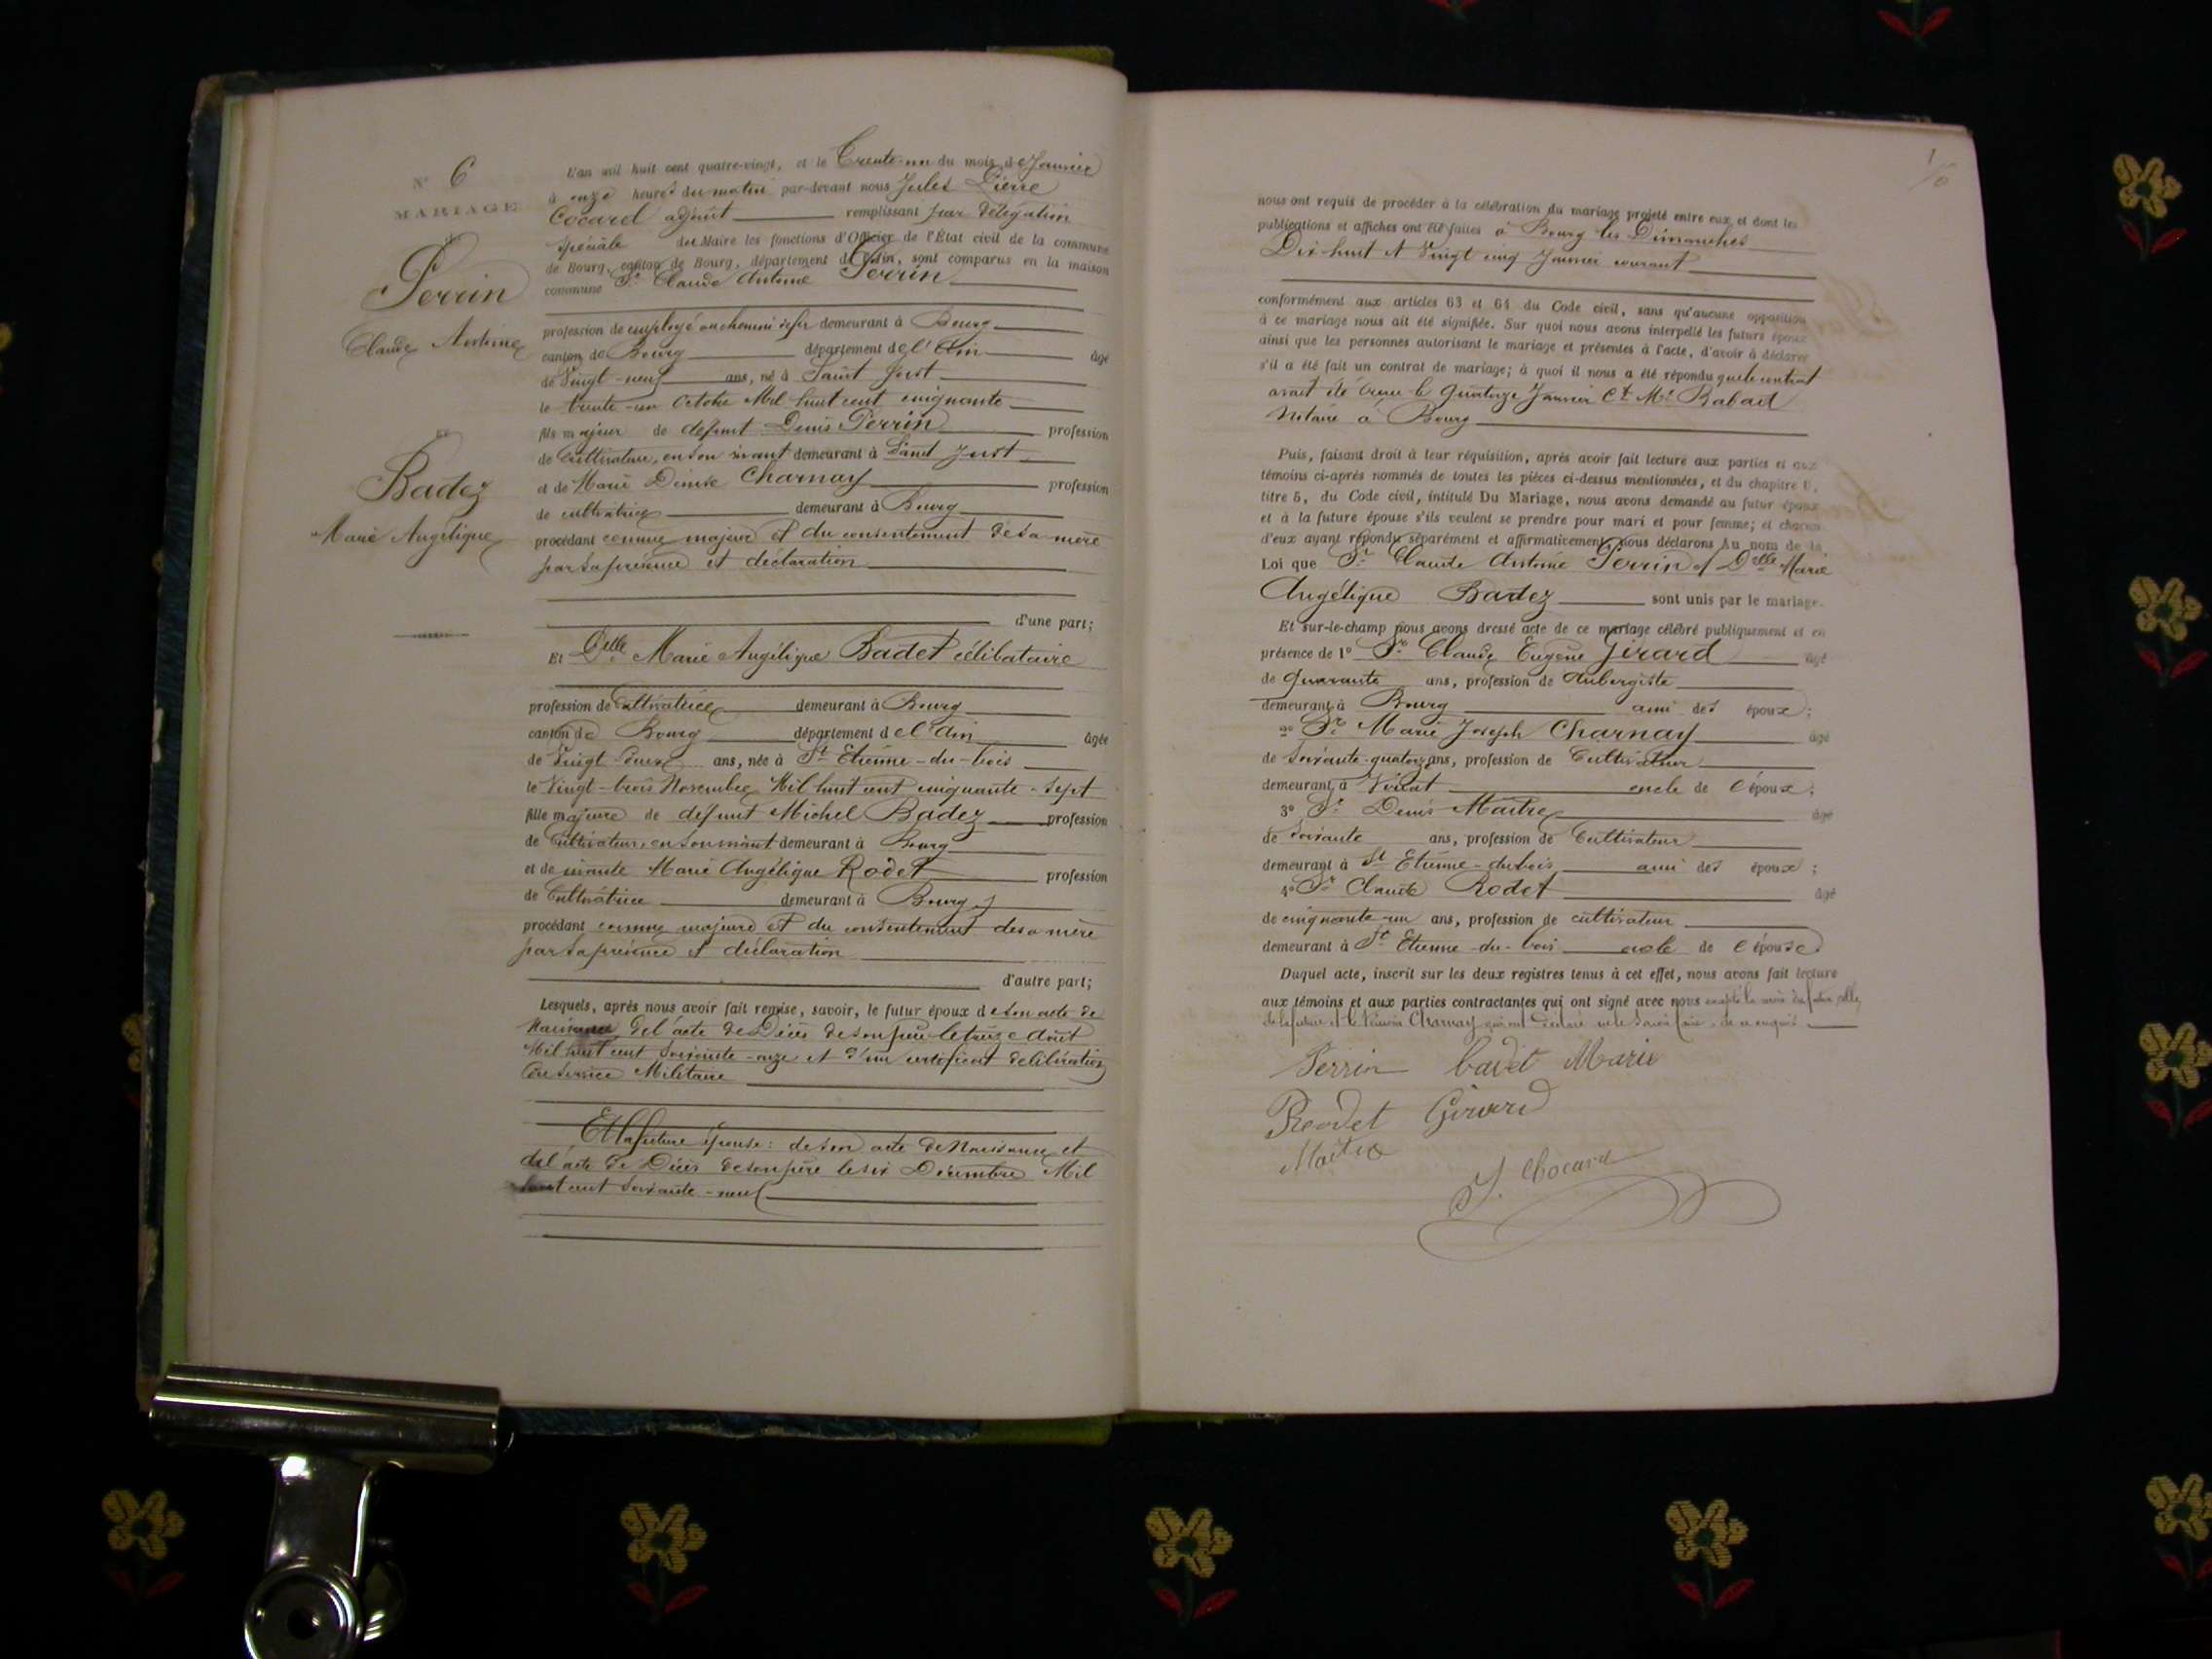 N° 6
MARIAGE
de
Perrin
Claude Antoine
ET
Badez
Marie Angélique
L'an mil huit cent quatre-vingt, et le Trente-un du mois de Janvier
à onze heures du matin par-devant nous Jules Pierre
Cocard adjoint remplissant par délégation
spéciale du Maire les fonctions d'Officier de l'État civil de la commune
de Bourg, canton de Bourg, département de l'Ain, sont comparus en la maison
commune Sr Claude Antoine Perrin
profession de employé au chemin de fer demeurant à Bourg
canton de Bourg département de l'Ain âgé
de Vingt-neuf ans, né à Saint Just
le trente-un Octobre Mil huit cent cinquante
fils majeur de défunt Denis Perrin profession
de Cultivateur, en son vivant demeurant à Saint Just
et de Marie Denise Charnay profession
de cultivatrice demeurant à Bourg
procédant comme majeur et du consentement de sa mère
par sa présence et déclaration
d'une part;
Et Delle Marie Angélique Badet célibataire
profession de Cultivatrice demeurant à Bourg
canton de Bourg département de l'Ain âgée
de Vingt-deux ans, née à St Etienne-du-bois
le Vingt-trois Novembre Mil huit cent cinquante-sept
fille majeure de défunt Michel Badez profession
de Cultivateur, en son vivant demeurant à Bourg
et de vivante Marie Angélique Rodet profession
de Cultivatrice demeurant à Bourg
procédant comme majeure et du consentement de sa mère
par sa présence et déclaration
d'autre part;
Lesquels, après nous avoir fait remise, savoir, le futur époux de son acte de
Naissance de l'acte de Décès de son père le treize Août
Mil huit cent soixante-onze et d'un certificat de libération
du service Militaire
Et la future épouse: de son acte de Naissance et
de l'acte de Décès de son père le six Décembre Mil
huit cent soixante-neuf
nous ont requis de procéder à la célébration du mariage projeté entre eux et dont les
publications et affiches ont été faites à Bourg les Dimanches
Dix-huit et Vingt cinq Janvier courant
conformément aux articles 63 et 64 du Code civil, sans qu'aucune opposition
à ce mariage nous ait été signifiée. Sur quoi nous avons interpellé les futurs époux
ainsi que les personnes autorisant le mariage et présentes à l'acte, d'avoir à déclarer
s'il a été fait un contrat de mariage; à quoi il nous a été répondu que le contrat
avait été reçu le quatorze Janvier Ct Me Rabact
Notaire à Bourg
Puis, faisant droit à leur réquisition, après avoir fait lecture aux parties et aux
témoins ci-après nommés de toutes les pièces ci-dessus mentionnées, et du chapitre 6,
titre 5, du Code civil, intitulé Du Mariage, nous avons demandé au futur époux
et à la future épouse s'ils veulent se prendre pour mari et pour femme; et chacun
d'eux ayant répondu séparément et affirmativement, nous déclarons Au nom de la
Loi que Sr Claude Antoine Perrin et Delle Marie
Angélique Badez sont unis par le mariage.
Et sur-le-champ nous avons dressé acte de ce mariage célébré publiquement et en
présence de 1° Sr Claude Eugène Girard âgé
de quarante ans, profession de Aubergiste
demeurant à Bourg ami des époux;
2° Sr Marie Joseph Charnay âgé
de soixante-quatorze ans, profession de Cultivateur
demeurant à oncle de l'époux;
3° Sr Denis Maitre âgé
de soixante ans, profession de Cultivateur
demeurant à St Etienne-du bois ami des époux;
4° Sr Claude Rodet âgé
de cinquante-un ans, profession de cultivateur
demeurant à St Etienne-du-bois oncle de l'épouse
Duquel acte, inscrit sur les deux registres tenus à cet effet, nous avons fait lecture
aux témoins et aux parties contractantes qui ont signé avec nous excepté la mère du futur, celle
de la future et le témoin Charnay qui ont déclaré ne le savoir faire, de ce enquis.
Perrin badet Marie
Reodet Girard
Maitre
J. Cocard